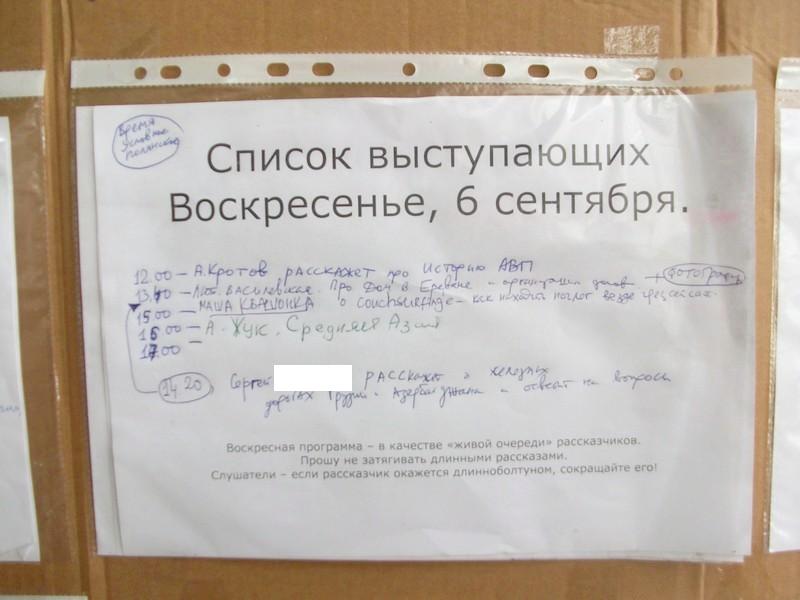 Время
условно
Список выступающих
Воскресенье, 6 сентября.
12.00 – А.Кротов расскажет про Историю АВП
13.40 – Люб. Василевская. Про Дом в Ереване и организации домов + фотографии
15.00 – МАША КВАШОНКА о couchsurfing'е – как находить ночлег везде через сайт.
16.00 – А. Жук. Средняя Азия
17.00 –
14.20 Сергей расскажет о железных
дорогах Грузии и Азербайджана и ответит на вопросы
Воскресная программа – в качестве «живой очереди» рассказчиков.
Прошу не затягивать длинными рассказами.
Слушатели – если рассказчик окажется длинноболтуном, сокращайте его!